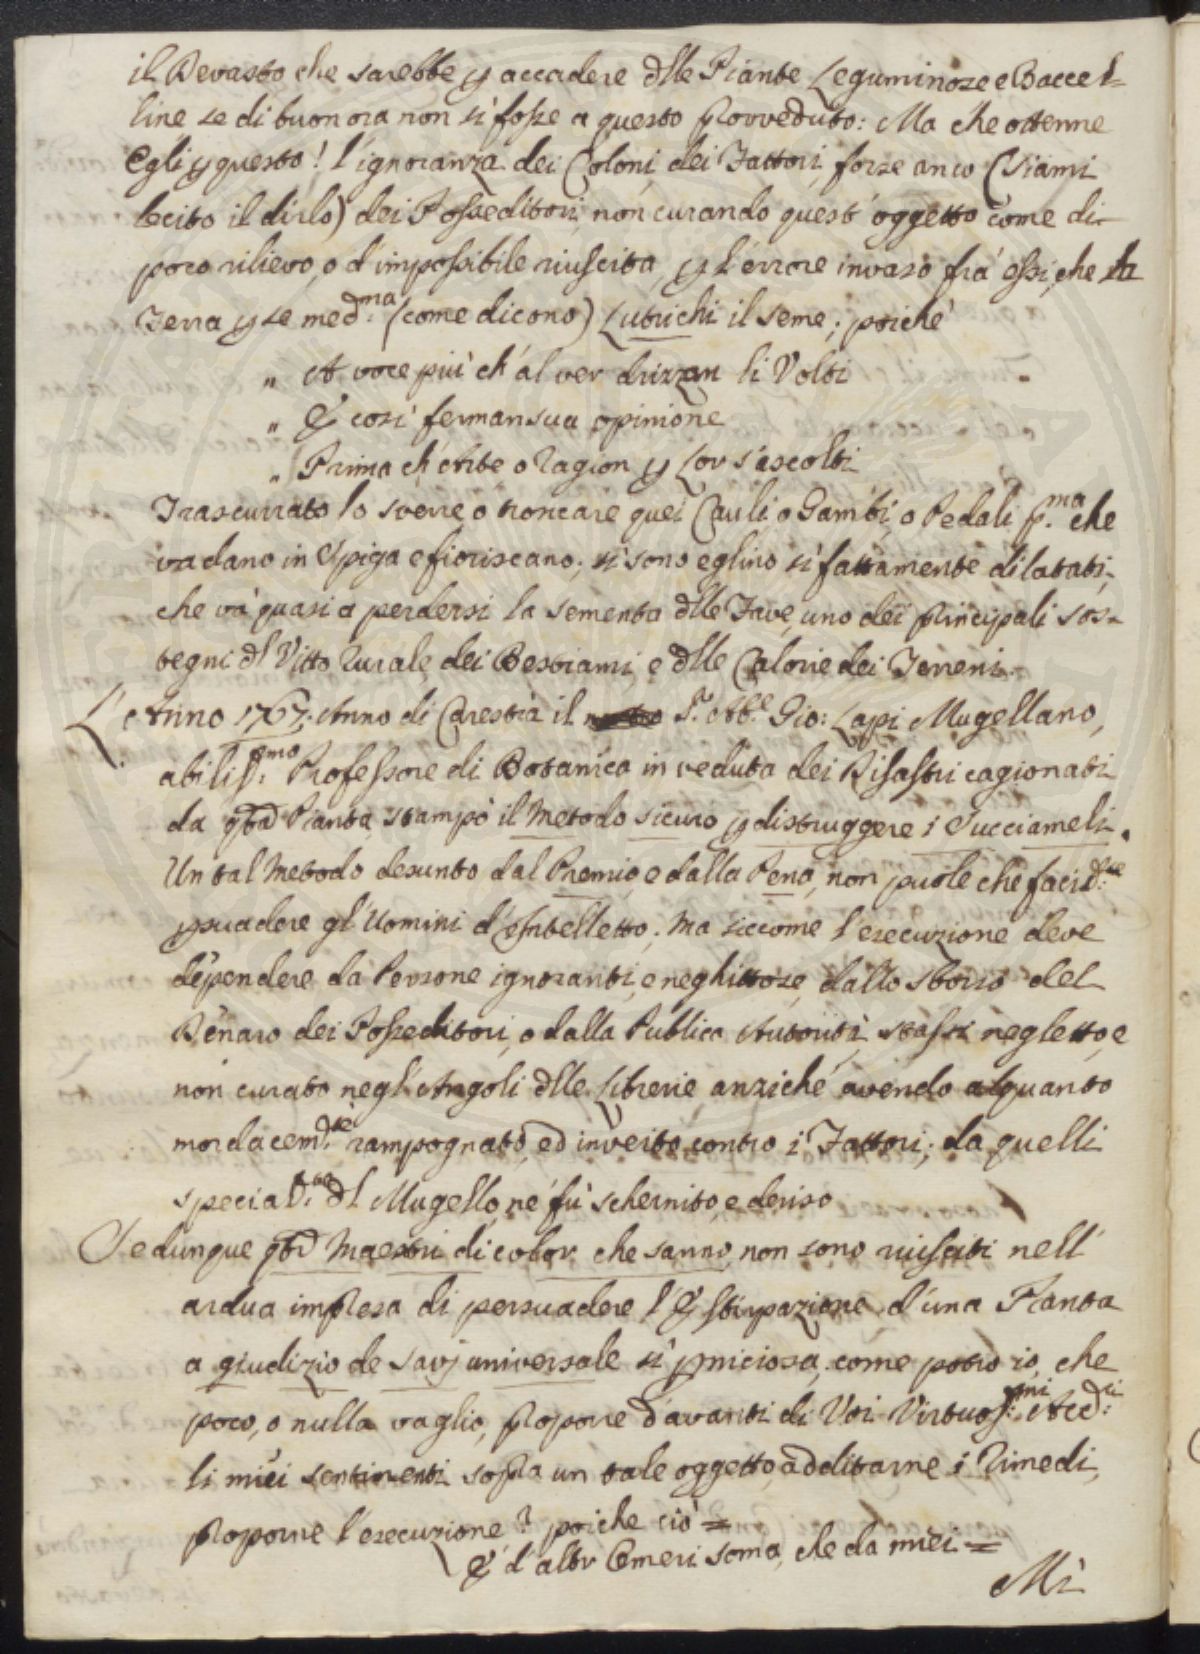 il Devasto che sarebbe p accadere dlle Piante Leguminose e Baccel=
line se di buon ora non si fosse a questo Provveduto: Ma che ottenne
Egli p questo! l'ignoranza dei Coloni, dei Fattori, forse anco (Siami
lecito il dirlo) dei Posseditori, non curando quest'oggetto come di
poco rilievo, o d'impossibile riuscita, p l'errore invaso frà essi, che la
Terra p se med.ma (come dicono) Lubrichi il seme; poiché
" A voce più ch'al ver drizzan li Volti
" E così ferman sua opinione
" Prima ch'Arte o Ragion p Lor s'ascolti
Trascurrato lo sverre, o troncare quei Cauli, o Gambi, o Pedali p.ma che
vadano in Spiga e fioriscano; si sono eglino sì fattamente dilatati,
che và quasi a perdersi la sementa dlle Fave, uno dei principali sos=
tegni dl Vitto Rurale, dei Bestiami, e dlle Calorie dei Terreni.
L'Anno 1767. Anno di Carestia il S.r Ab.e Gio: Lapi Mugellano,
abiliss:mo Professore di Botanica in veduta dei Disastri cagionati
da qta Pianta stampò il Metodo sicuro p distruggere i Succiameli.
Un tal Metodo desunto dal Premio, e dalla Pena, non puole che facild.te
psuadere gl'Uomini d'Intelletto; ma siccome l'esecuzione deve
dependere da Persone ignoranti, e neghittose, dallo sborso del
Denaro dei Posseditori, o dalla Publica Autorità, stassi negletto, e
non curato negl'Angoli dlle Librerie anziché avendo alquanto
mordacem.te rampognato, ed inveito contro i Fattori; da quelli
special.te dl Mugello, ne fù schernito, e deriso
Se dunque qti Maestri di color che sanno, non sono riusciti nell'
ardua impresa di persuadere l'Estirpazione d'una Pianta
a giudizio de savj universale sì pniciosa; come potrò io, che
poco, o nulla vaglio, proporre d'avanti di Voi Virtuos:mi Accd:ci
li miei sentimenti sopra un tale oggetto, additarne i Rimedi,
proporne l'esecuzione? poiche ciò =
E' d'altr Omeri soma, che da miei =
Mi